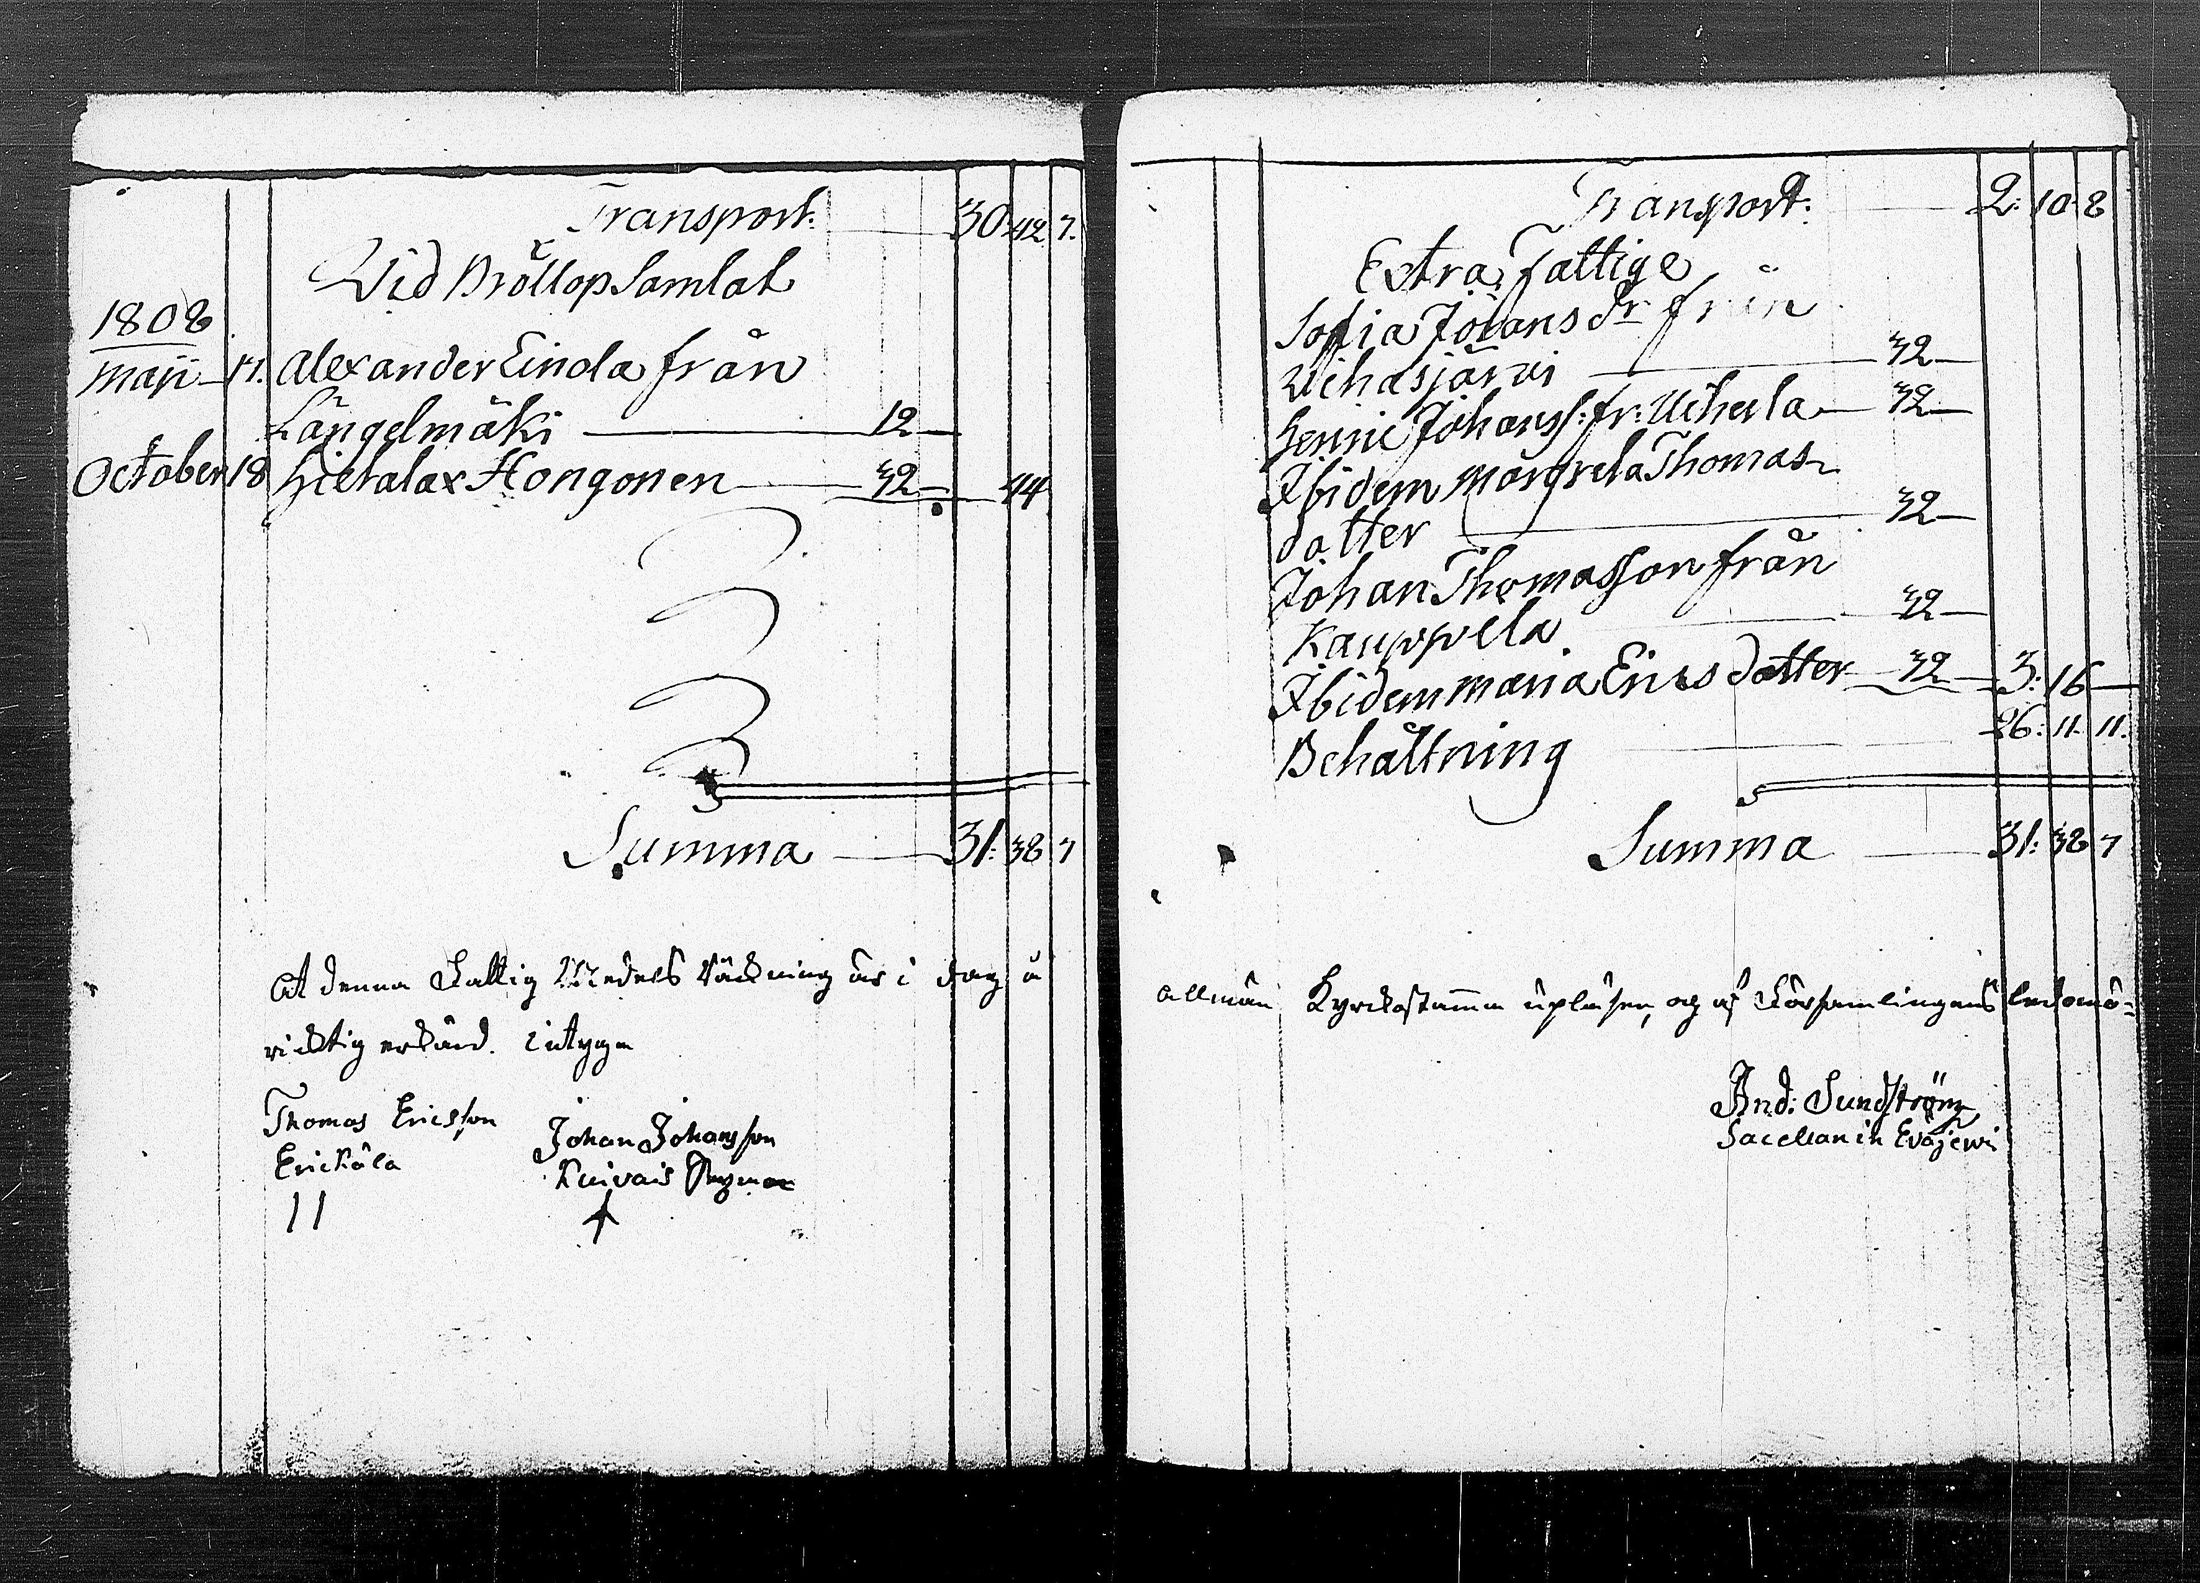 Transport: 30 42 7.
Vid Bröllop Samlat
1808
Maji 17. Alexander Einola från
Längelmäki 12
October 18 Hietalax Hongonen 32 44
Summa 31: 38 7
At denna Fattig Medels Räckning är i dag å
ricktig erkänd. intyga
Thomas Ericsson
Erickälä
Johan Johansson
Transport: 2: 10 8
Extra Fattige
Sofia Johans dr från
Uihasjärvi 32
Henric Johanss: fr: Uiherla 32
Ibidem Margreta Thomas
dotter 32
Johan Thomasson från
Kauppela 32
Ibidem Maria Erics dotter 32 3: 16
Behåltning 26: 11. 11.
Summa 31: 38 7
allmän Kyrckostämma upläsen, og af Församlingens ledamö=
And: Sundström
Sacellan in Eväjervi